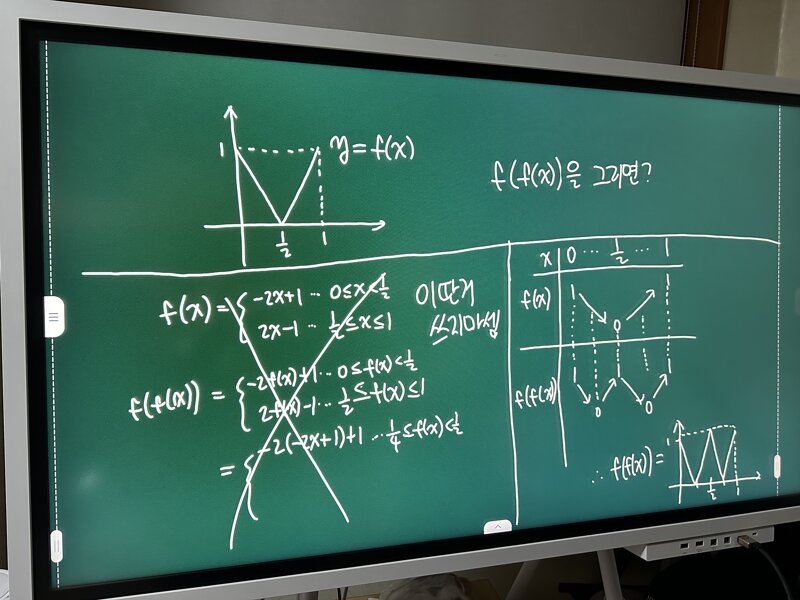 1
y=f(x)
1/2 1
f(f(x))을 그리면?
f(x)= { -2x+1 ··· 0≤x<1/2
2x-1 ··· 1/2≤x≤1
이딴거
쓰지마셈
f(f(x)) = { -2f(x)+1 ··· 0≤f(x)<1/2
2f(x)-1 ··· 1/2≤f(x)≤1
= { -2(-2x+1)+1 ··· 1/4≤f(x)<1/2
x 0 ··· 1/2 ··· 1
f(x) 1 ↘ 0 ↗ 1
f(f(x)) 1 ↘ 0 ↗ 1 ↘ 0 ↗ 1
∴ f(f(x)) =
1
1/2 1